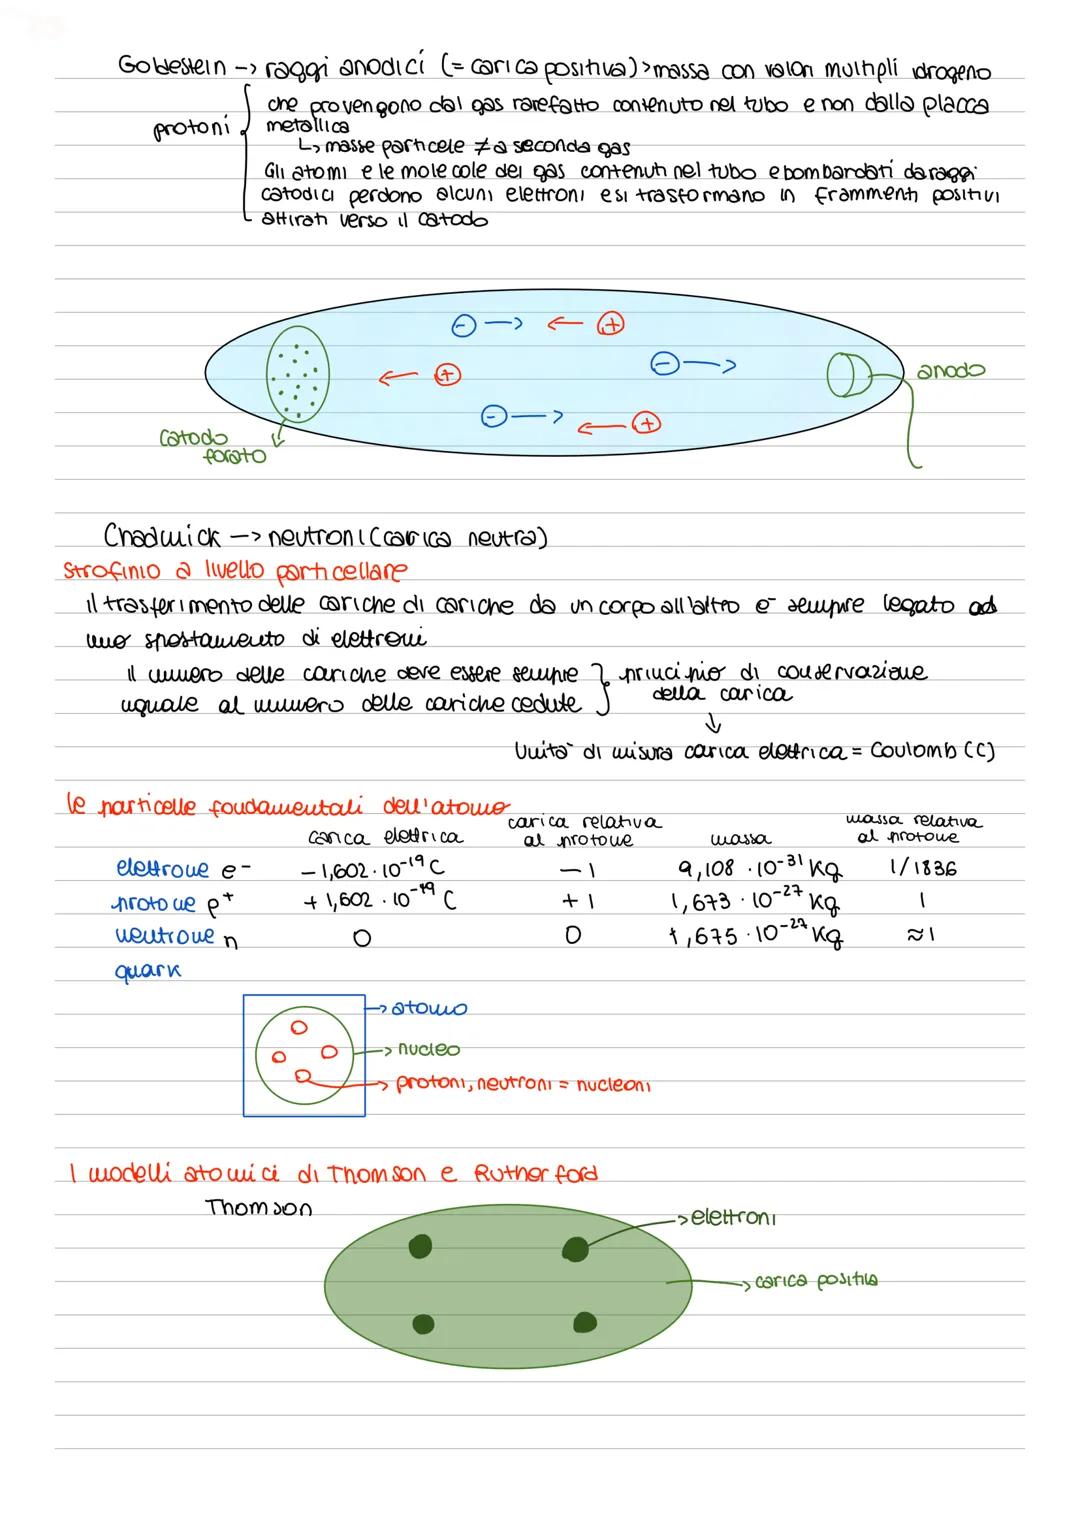 Goldestein -> raggi anodici (= carica positiva)> massa con valori multipli idrogeno
protoni
che provengono dal gas rarefatto contenuto nel tubo e non dalla placca
metallica
↳ masse particele ≠ a seconda gas
Gli atomi e le molecole dei gas contenuti nel tubo e bombardati da raggi
catodici perdono alcuni elettroni e si trasformano in frammenti positivi
attirati verso il catodo
- -> <- +
<- + - ->
anodo
- -> <- +
catodo
forato
Chadwick -> neutroni (carica neutra)
strofinio a livello particellare
il trasferimento delle cariche di cariche da un corpo all'altro è sempre legato ad
uno spostamento di elettroni
il numero delle cariche deve essere sempre } principio di conservazione
uguale al numero delle cariche cedute della carica
↓
Unità di misura carica elettrica = Coulomb (C)
le particelle fondamentali dell'atomo
carica elettrica carica relativa al protone massa massa relativa al protone
elettrone e⁻ - 1,602 · 10⁻¹⁹ C - 1 9,108 · 10⁻³¹ Kg 1/1836
protone p⁺ + 1,602 · 10⁻¹⁹ C + 1 1,673 · 10⁻²⁷ Kg 1
neutrone n 0 0 1,675 · 10⁻²⁷ Kg ≈1
quark
-> atomo
-> nucleo
-> protoni, neutroni = nucleoni
I modelli atomici di Thomson e Rutherford
Thomson
-> elettroni
-> carica positiva